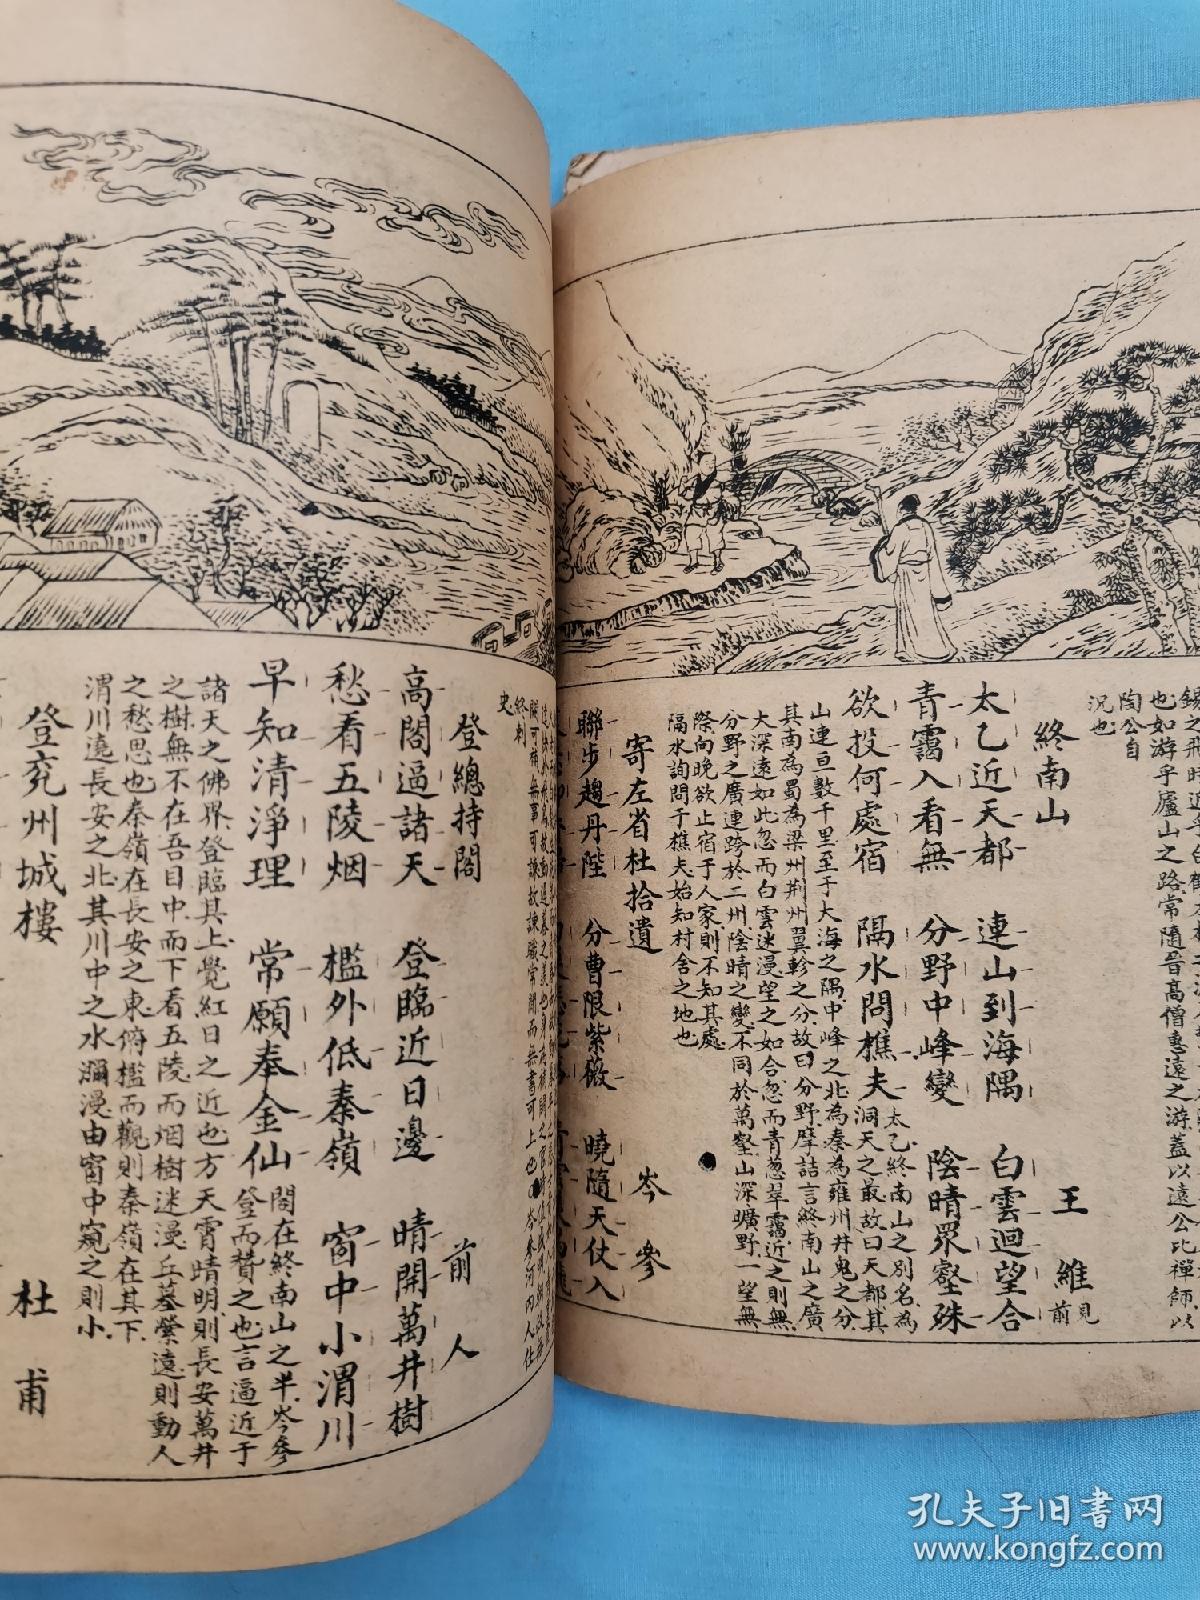 陶公自
況也
終南山 王維 見前
太乙近天都 連山到海隅 白雲迴望合
青靄入看無 分野中峰變 陰晴眾壑殊
欲投何處宿 隔水問樵夫
太乙終南山之別名為
洞天之最故曰天都其
山連亘數千里至于大海之隅中峰之北為秦為雍州井鬼之分
其南為蜀為梁州荆州翼軫之分故曰分野摩詰言終南山之廣
大深遠如此忽而白雲迷漫望之如合忽而青蔥翠靄近之則無
分野之廣連跨於二州陰晴之變不同於萬壑山深曠野一望無
際向晚欲止宿于人家則不知其處
隔水詢問于樵夫始知村舍之地也
寄左省杜拾遺 岑參
聯步趨丹陛 分曹限紫微 曉隨天仗入
終刺
史
登總持閣 前人
高閣逼諸天 登臨近日邊 晴開萬井樹
愁看五陵烟 檻外低秦嶺 窗中小渭川
早知清淨理 常願奉金仙
閣在終南山之半岑參
登而贊之也言逼近于
諸天之佛界登臨其上覺紅日之近也方天霄晴明則長安萬井
之樹無不在吾目中而下看五陵而烟樹迷漫丘墓縈遠則動人
之愁思也秦嶺在長安之東俯檻而觀則秦嶺在其下
渭川遠長安之北其川中之水瀰漫由窗中窺之則小
登兖州城樓 杜甫
孔夫子旧書网
www.kongfz.com